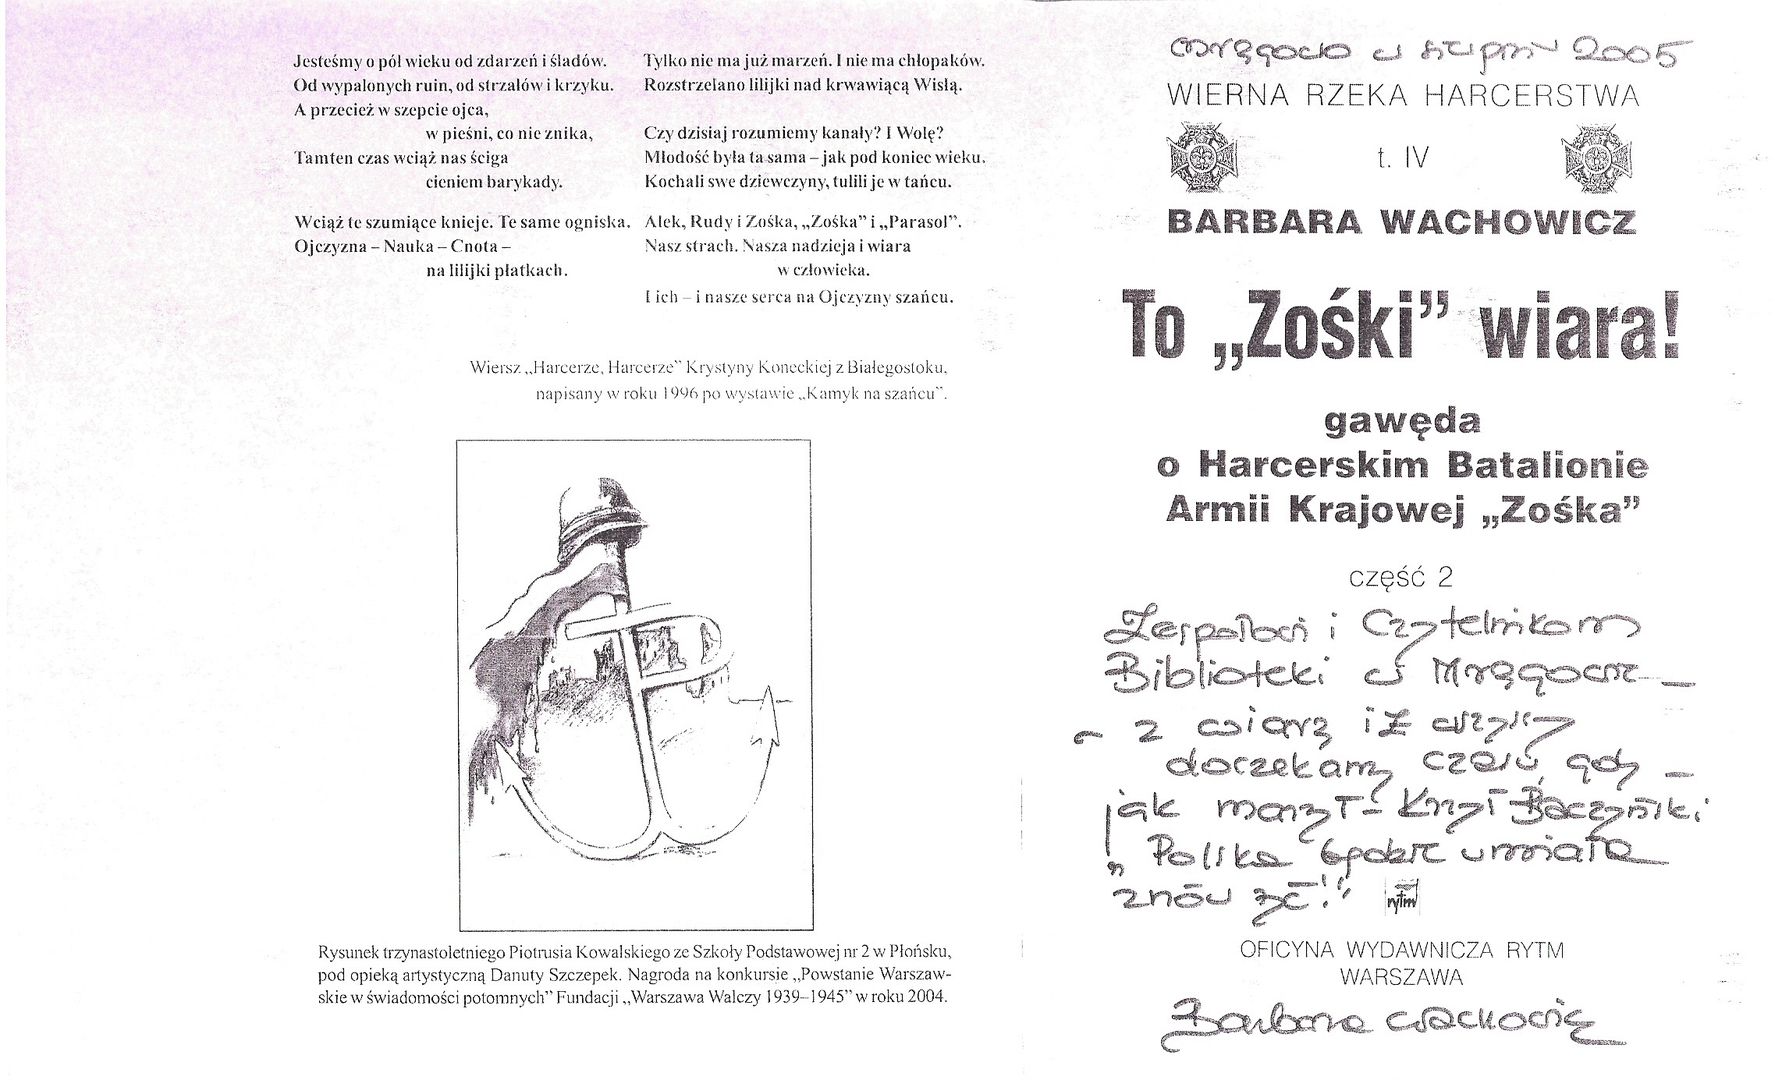 Jesteśmy o pół wieku od zdarzeń i śladów.
Od wypalonych ruin, od strzałów i krzyku.
A przecież w szepcie ojca,
w pieśni, co nie znika,
Tamten czas wciąż nas ściga
cieniem barykady.
Wciąż te szumiące knieje. Te same ogniska.
Ojczyzna – Nauka – Cnota –
na lilijki płatkach.
Tylko nie ma już marzeń. I nie ma chłopaków.
Rozstrzelano lilijki nad krwawiącą Wisłą.
Czy dzisiaj rozumiemy kanały? I Wolę?
Młodość była ta sama – jak pod koniec wieku.
Kochali swe dziewczyny, tulili je w tańcu.
Alek, Rudy i Zośka, „Zośka” i „Parasol”.
Nasz strach. Nasza nadzieja i wiara
w człowieka.
I ich – i nasze serca na Ojczyzny szańcu.
Wiersz „Harcerze, Harcerze” Krystyny Koneckiej z Białegostoku,
napisany w roku 1996 po wystawie „Kamyk na szańcu”.
Rysunek trzynastoletniego Piotrusia Kowalskiego ze Szkoły Podstawowej nr 2 w Płońsku,
pod opieką artystyczną Danuty Szczepek. Nagroda na konkursie „Powstanie Warszaw-
skie w świadomości potomnych” Fundacji „Warszawa Walczy 1939–1945” w roku 2004.
Mrągowo w sierpniu 2005
WIERNA RZEKA HARCERSTWA
t. IV
BARBARA WACHOWICZ
To „Zośki” wiara!
gawęda
o Harcerskim Batalionie
Armii Krajowej „Zośka”
część 2
Zespołowi i Czytelnikom
Biblioteki w Mrągowie –
z wiarą iż wszyscy
doczekamy czasu, gdy –
jak marzył – Krzyś Baczyński
„Polska będzie umiała
znów żyć!”
rytm
OFICYNA WYDAWNICZA RYTM
WARSZAWA
Barbara Wachowicz